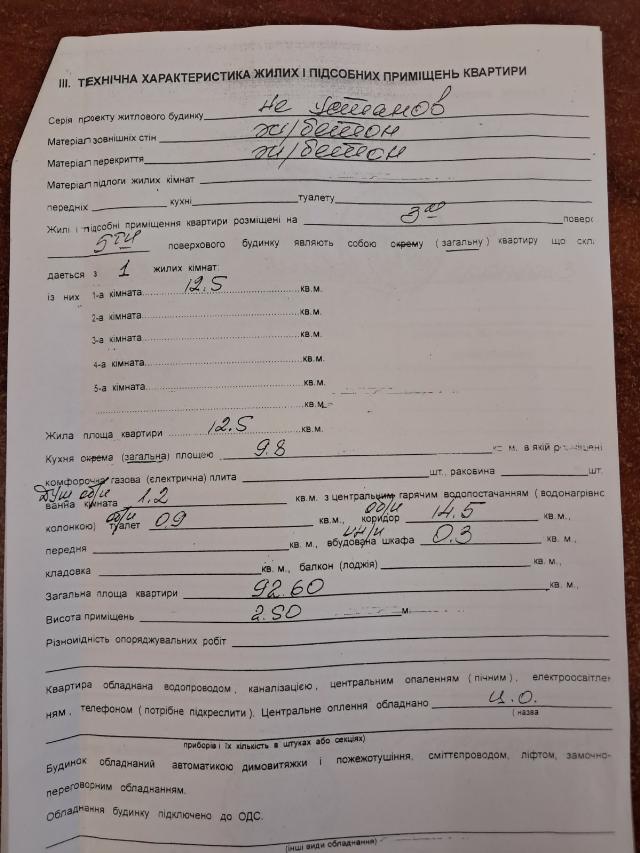 III. ТЕХНІЧНА ХАРАКТЕРИСТИКА ЖИЛИХ І ПІДСОБНИХ ПРИМІЩЕНЬ КВАРТИРИ
Серія проекту житлового будинку не установ
Матеріал зовнішніх стін ж/бетон
Матеріал перекриття ж/бетон
Матеріал підлоги жилих кімнат
передніх кухні туалету
Жилі і підсобні приміщення квартири розміщені на 3му повер
5ти поверхового будинку являють собою окрему (загальну) квартиру що скл
дається з 1 жилих кімнат:
із них 1-а кімната 12.5 кв.м.
2-а кімната кв.м.
3-а кімната кв.м.
4-а кімната кв.м.
5-а кімната кв.м.
кв.м.
Жила площа квартири 12.5 кв.м.
Кухня окрема (загальна) площею 9.8 кв. м, в якій розміщені
комфорочна газова (єлектрична) плита шт., раковина шт.
душ общ
ванна кімната 1.2 кв.м. з центральним гарячим водопостачанням (водонагрівно
общ общ
колонкою) туалет 0.9 кв.м., коридор 14.5 кв.м.,
передня кв. м., вбудована шкафа 0.3 кв. м.,
кладовка кв. м., балкон (лоджія) кв. м.,
Загальна площа квартири 92.60 кв. м.,
Висота приміщень 2.50 м.
Різноидність опоряджувальних робіт
Квартира обладнана водопроводом, каналізацією, центральним опаленням (пічним), електроосвітлен
ням, телефоном (потрібне підкреслити). Центральне оплення обладнано ц.о.
(назва
приборів і їх кількість в штуках або секціях)
Будинок обладнаний автоматикою димовитяжки і пожежотушіння, сміттєпроводом, ліфтом, замочно-
переговорним обладнанням.
Обладнання будинку підключено до ОДС.
(інші види обладнання)